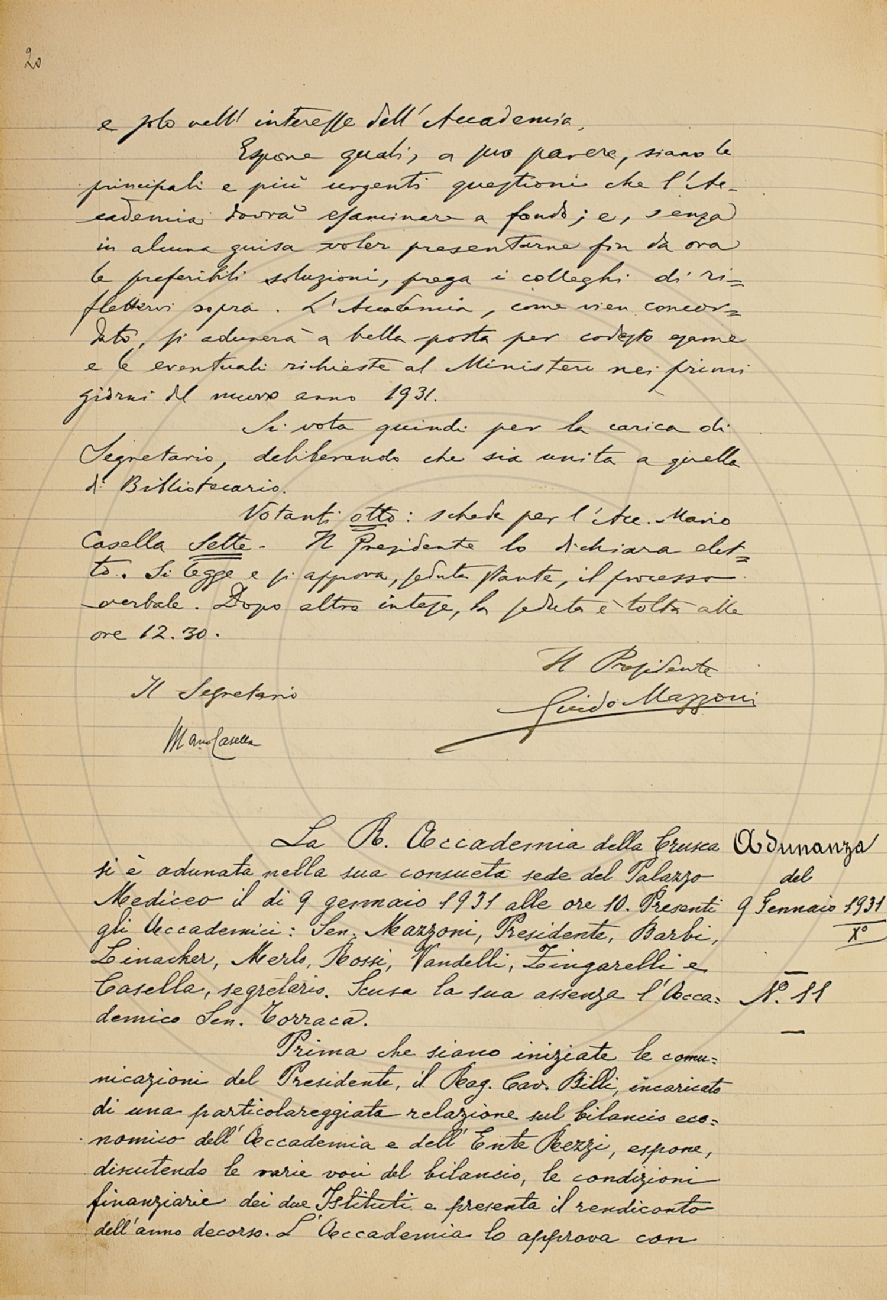 20
e solo nell'interesse dell'Accademia.
Espone quali, a suo parere, siano le
principali e più urgenti questioni che l'Ac-
cademia dovrà esaminare a fondo; e, senza
in alcuna guisa voler presentarne fin da ora
le preferibili soluzioni, prega i colleghi di ri=
flettervi sopra. L'Accademia, come vien concor=
dato, si adunerà a bella posta per codesto esame
e le eventuali richieste al Ministero nei primi
giorni del nuovo anno 1931.
Si vota quindi per la carica di
Segretario, deliberando che sia unita a quella
di Bibliotecario.
Votanti otto: schede per l'Acc. Mario
Casella sette. Il Presidente lo dichiara elet=
to. Si legge e si approva, seduta stante, il processo
verbale. Dopo altre intese, la seduta è tolta alle
ore 12.30.
Il Presidente
Guido Mazzoni
Il Segretario
Mario Casella
La R. Accademia della Crusca
si è adunata nella sua consueta sede del Palazzo
Mediceo il dì 9 gennaio 1931 alle ore 10. Presenti
gli Accademici: Sen. Mazzoni, Presidente, Barbi,
Linacher, Merlo, Rossi, Vandelli, Zingarelli e
Casella, segretario. Scusa la sua assenza l'Acca=
demico Sen. Torraca.
Prima che siano iniziate le comu=
nicazioni del Presidente, il Rag. Cav. Billi, incaricato
di una particolareggiata relazione sul bilancio eco=
nomico dell'Accademia e dell'Ente Rezzi, espone,
discutendo le varie voci del bilancio, le condizioni
finanziarie dei due Istituti e presenta il rendiconto
dell'anno decorso. L'Accademia lo approva con
Adunanza
del
9 Gennaio 1931
X°
N.° 11